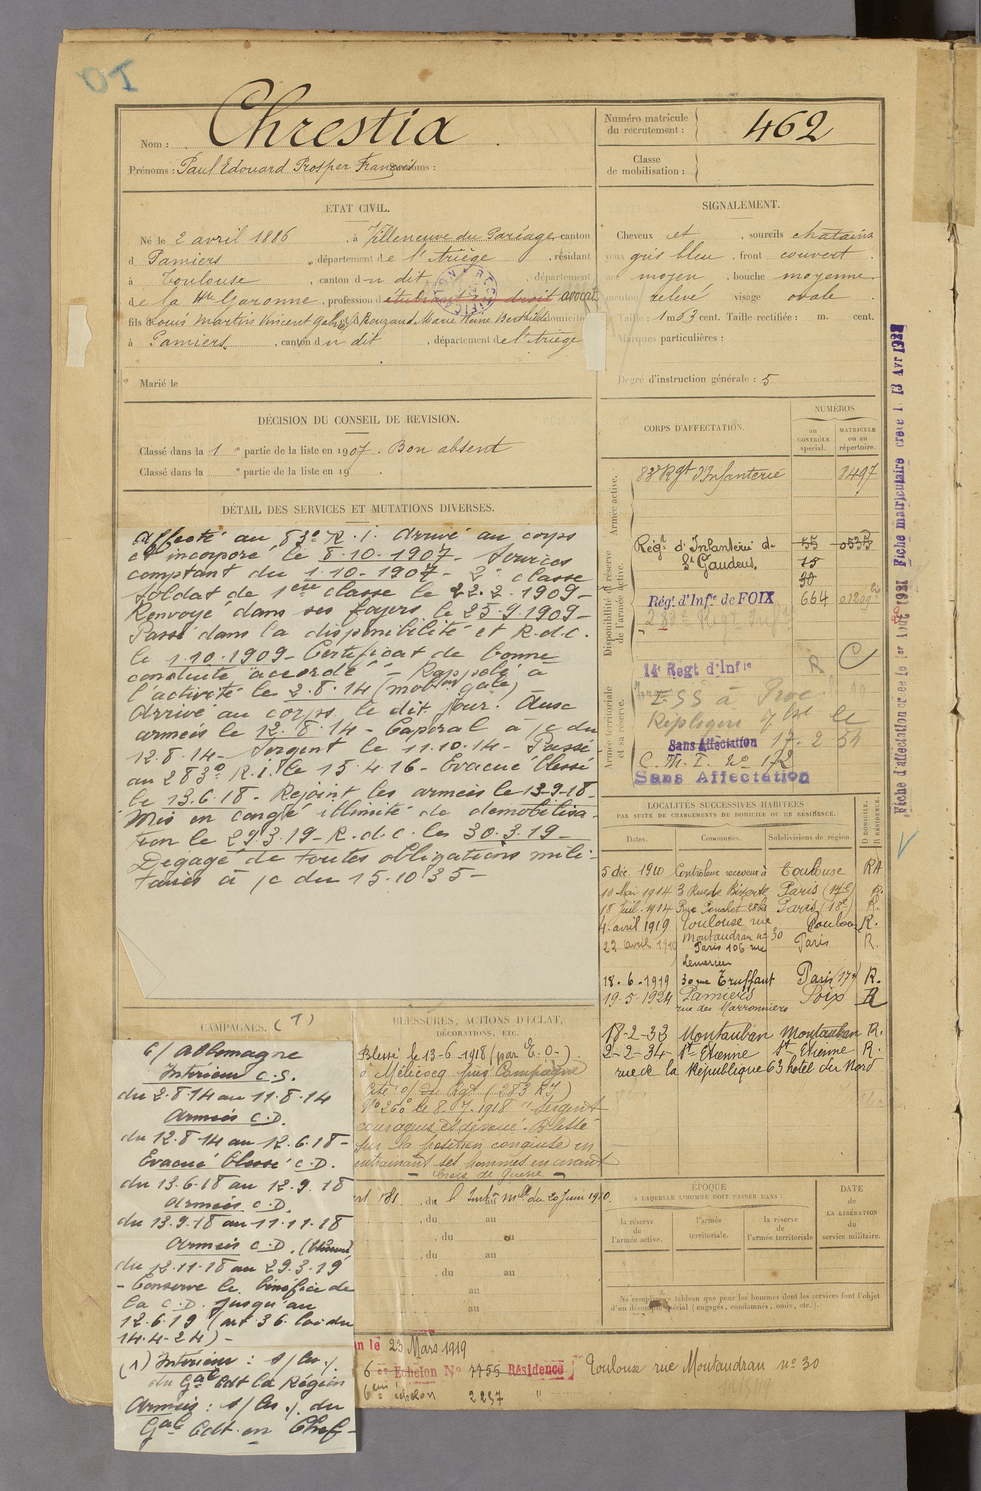 Nom : Chrestia
Prénoms : Paul Edouard Prosper François
Numéro matricule du recrutement : 462
Classe de mobilisation :
ÉTAT CIVIL.
Né le 2 avril 1886, à Villeneuve du Paréage, canton
d Pamiers, département de l'Ariège, résidant
à Toulouse, canton du dit, département
de la Hte Garonne, profession d étudiant en droit avocat
fils de Louis Martin Vincent et de Rouzaud Marie domicilié
à Pamiers, canton du dit, département de l'Ariège
Marié le
SIGNALEMENT.
Cheveux et, sourcils chatains
yeux gris bleu, front couvert
nez moyen, bouche moyenne
menton relevé visage ovale
Taille : 1 m 63 cent. Taille rectifiée : m. cent.
Marques particulières :
Degré d'instruction générale : 5
DÉCISION DU CONSEIL DE REVISION.
Classé dans la 1e partie de la liste en 1907. Bon absent
Classé dans la e partie de la liste en 19 .
DÉTAIL DES SERVICES ET MUTATIONS DIVERSES.
Affecté au 83e R.I. Arrivé au corps
et incorporé le 8.10.1907. Services
comptant du 1.10.1907- 2e classe
Soldat de 1ère classe le 22.2.1909-
Renvoyé dans ses foyers le 25.9.1909-
Passé dans la disponibilité et R.d.c.
le 1.10.1909- Certificat de bonne
conduite accordé - Rappelé à
l'activité le 2.8.14 (mobon gale)
Arrivé au corps le dit jour. Aux
armées le 12.8.14- Caporal à /c du
12.8.14- Sergent le 11.10.14- Passé
au 283e R.I. le 15.4.16- Evacué blessé
le 13.6.18- Rejoint les armées le 13-9-18-
Mis en congé illimité de démobilisa-
tion le 29.3.19- R.d.c. les 30.3.19-
Dégagé de toutes obligations mili-
taires à /c du 15.10.35-
CORPS D'AFFECTATION.
NUMÉROS
au CONTRÔLE spécial.
MATRICULE ou au répertoire.
Armée active.
83e Rgt d'Infanterie 8497
Disponibilité et réserve de l'armée active.
Régt d'Infanterie de St Gaudens
Régt d'Infie de FOIX 664
14e Régt d'Infie
Armée territoriale et sa réserve.
Sans Affectation 17-2-54
C.M.I. no 172
Sans Affectation
Fiche matriculaire créée l
LOCALITÉS SUCCESSIVES HABITÉES
PAR SUITE DE CHANGEMENTS DE DOMICILE OU DE RÉSIDENCE.
Dates. Communes. Subdivisions de région. D. DOMICILE. R. RÉSIDENCE.
5 déc. 1910 Toulouse
10 Mai 1914 Paris (17e) R.
18 Juil. 1914 Paris (18e) R.
4 avril 1919 Toulouse rue Montaudran no 30 Toulouse R.
22 avril 1919 Paris 106 rue Lemercier Paris R.
18-6-1919 30 rue Truffaut Paris (17e) R.
19-5-1924 Pamiers rue des Marronniers Foix R
18-2-33 Montauban Montauban R.
2-2-34 St Etienne St Etienne R.
rue de la République 63 hôtel du Nord
CAMPAGNES. (1)
c/ Allemagne
Intérieur C.S.
du 2-8-14 au 11-8-14
Armées C.D.
du 12-8-14 au 12.6.18-
Evacué blessé C.D.
du 13-6-18 au 12.9.18
Armées C.D.
du 13.9.18 au 11.11.18
Armées C.D.
du 12-11-18 au 29.3.19
- Conserve le bénéfice de
la C.D. jusqu'au
12.6.19 (art 36 loi du
14-4-24) -
(1) Intérieur :
du Gal Cdt la Région
Armées : du
Gal Cdt en Chef-
BLESSURES, ACTIONS D'ÉCLAT,
DÉCORATIONS, ETC.
Blessé le 13-6-1918 (par E.O.)
à Mélicocq près Compiègne
Cité o/ du Rgt (283 RI)
No 260 le 8.7.1918 "Sergent
courageux et dévoué. Blessé
sur la position conquise en
entrainant ses hommes en avant
- Croix de guerre -
du 20 Juin 1910.
, du au
, du au
, du au
, du au
au
au
ÉPOQUE
À LAQUELLE L'HOMME DOIT PASSER DANS :
la réserve de l'armée active.
l'armée territoriale.
la réserve de l'armée territoriale
DATE de LA LIBÉRATION du service militaire.
Ne remplir ce tableau que pour les hommes dont les services font l'objet
d'un décompte spécial (engagés, condamnés, omis, etc.).
le 23 Mars 1919
6e Echelon No 7755 Résidence Toulouse rue Montaudran no 30
6ème échelon 2237 "